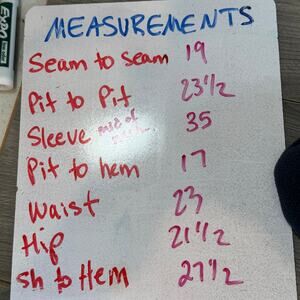 EXPO
MEASUREMENTS
Seam to seam 19
Pit to Pit 23 1/2
Sleeve mid of 35
Pit to hem 17
Waist 23
Hip 21 1/2
Sh to Hem 27 1/2